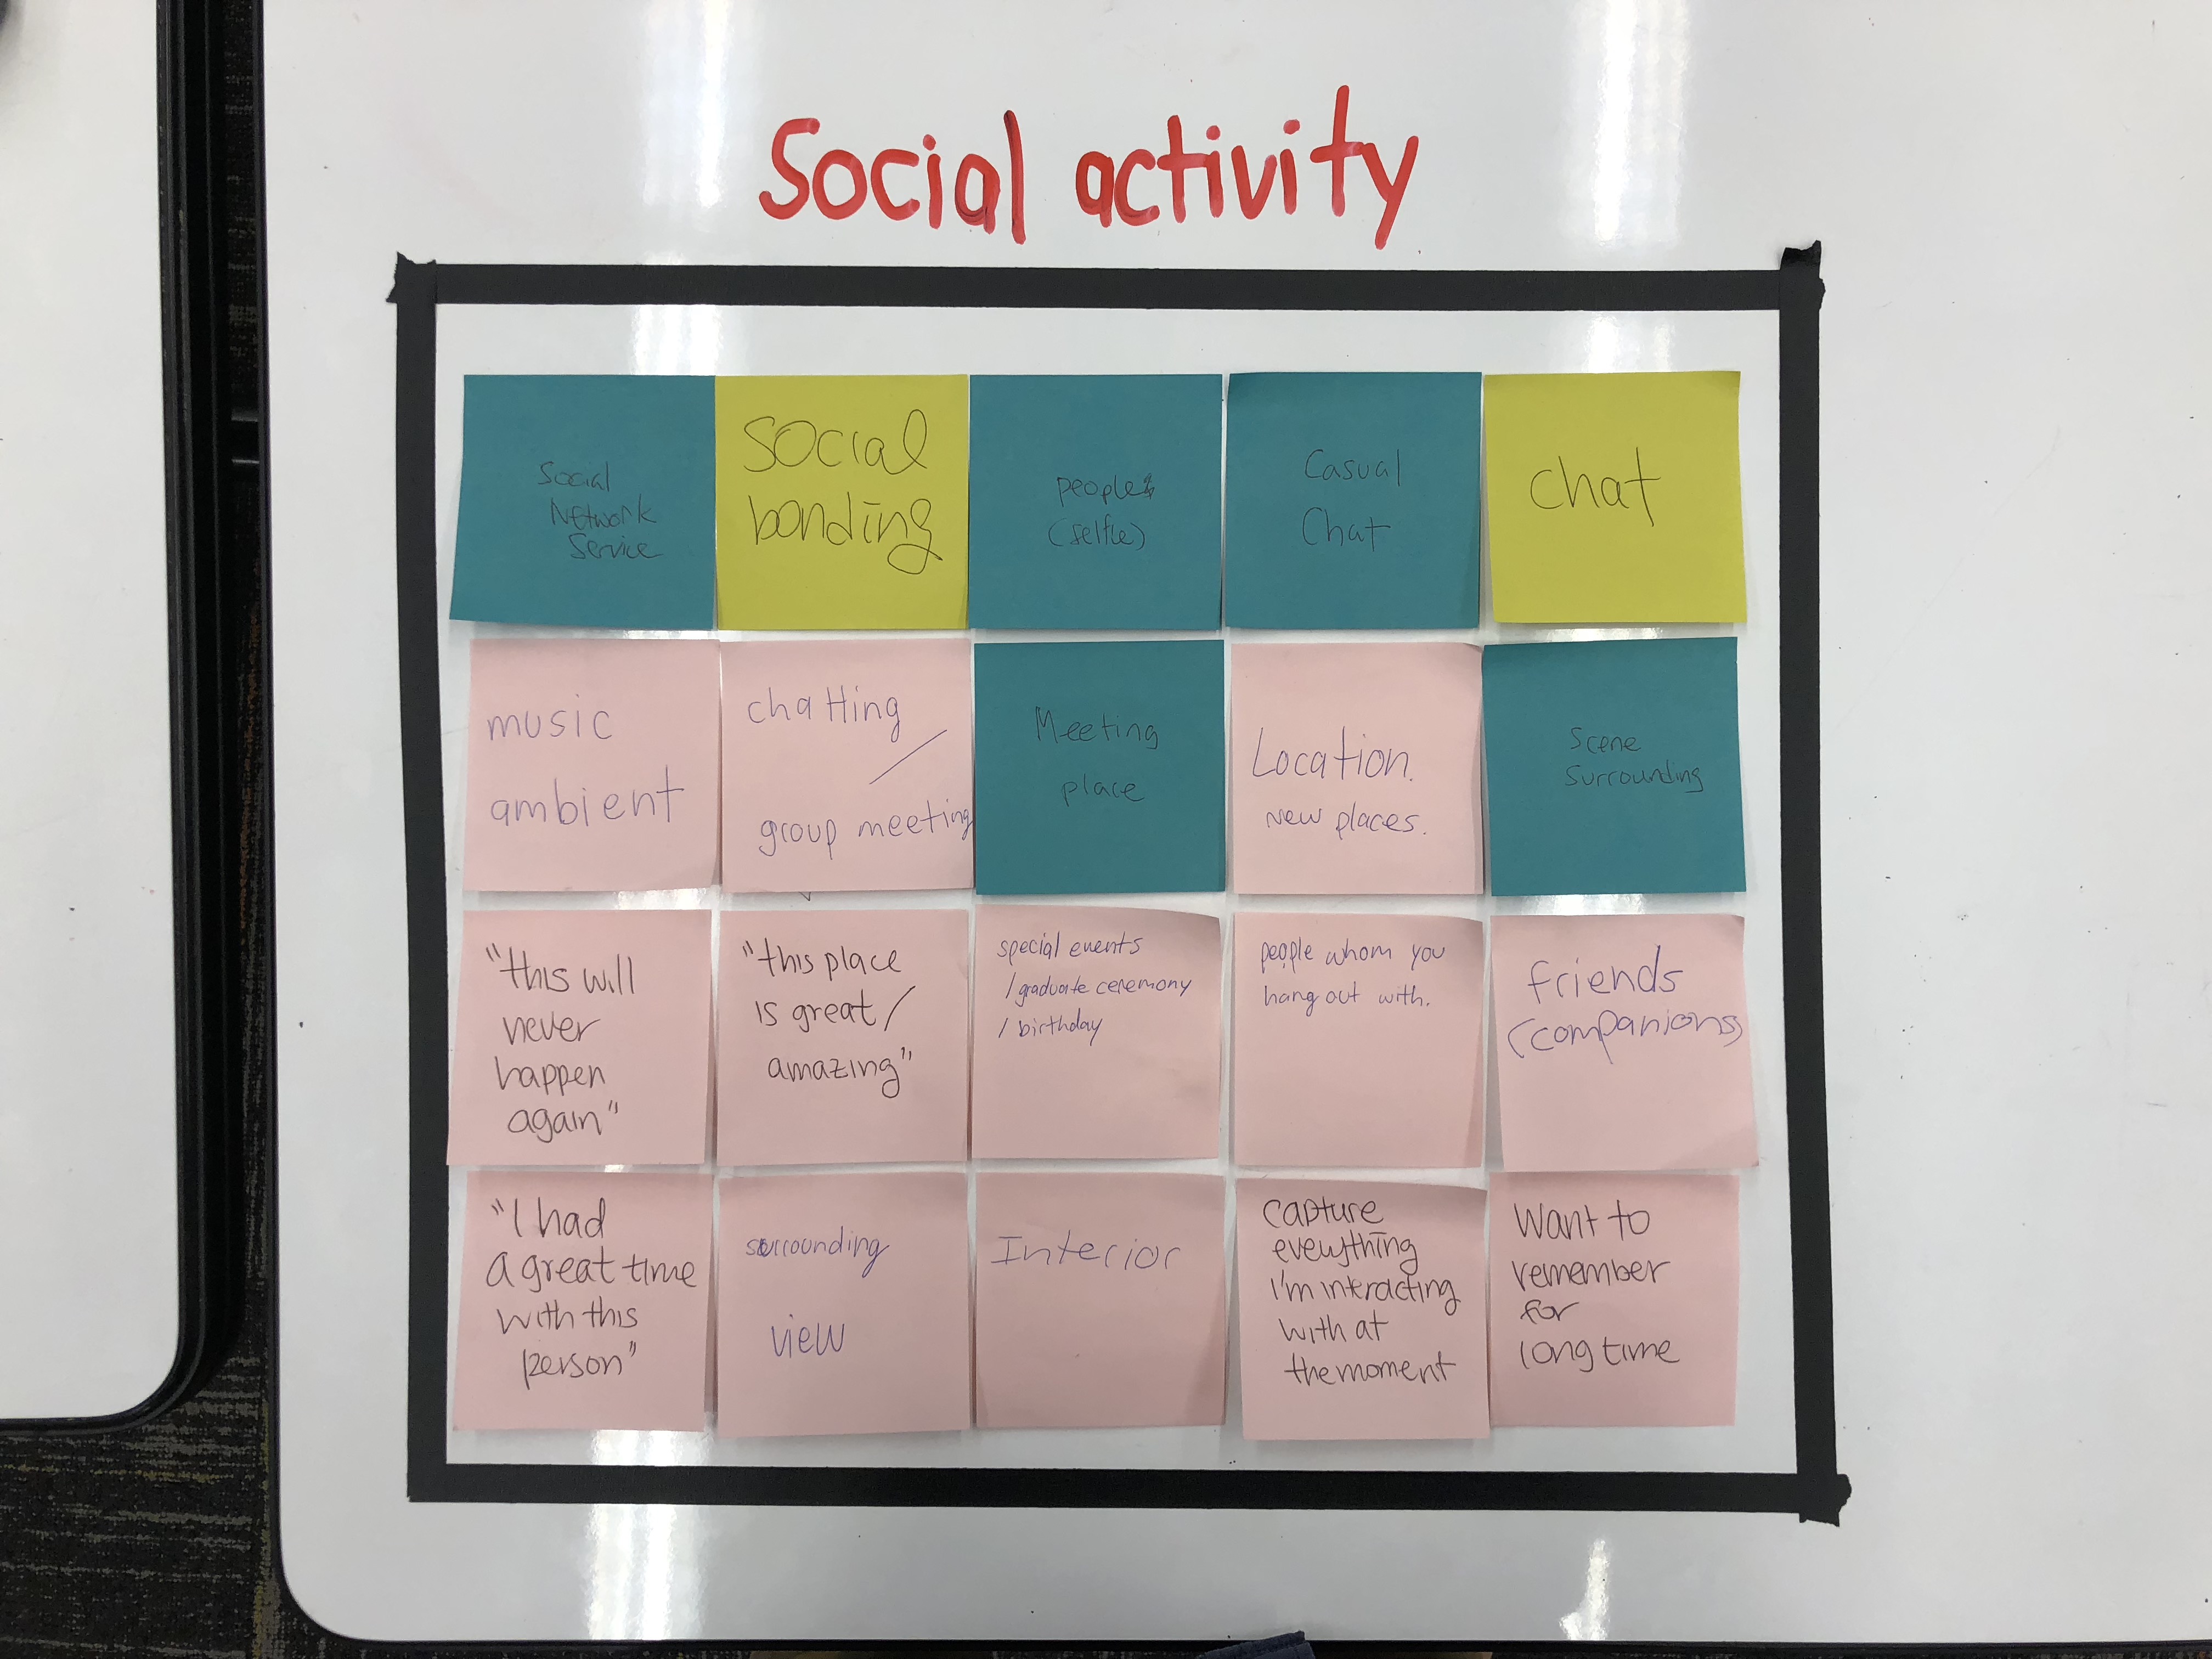 Social activity
Social
Network
Service
Social
bonding
people
(selfie)
Casual
Chat
Chat
music
ambient
chatting /
group meeting
Meeting
place
Location.
New places.
Scene
Surrounding
"this will
never
happen
again"
"this place
is great/
amazing"
special events
/graduate ceremony
/birthday
people whom you
hang out with.
friends
(companions)
"I had
a great time
with this
person"
surrounding
view
Interior
capture
everything
I'm interacting
with at
the moment
Want to
remember
for
long time